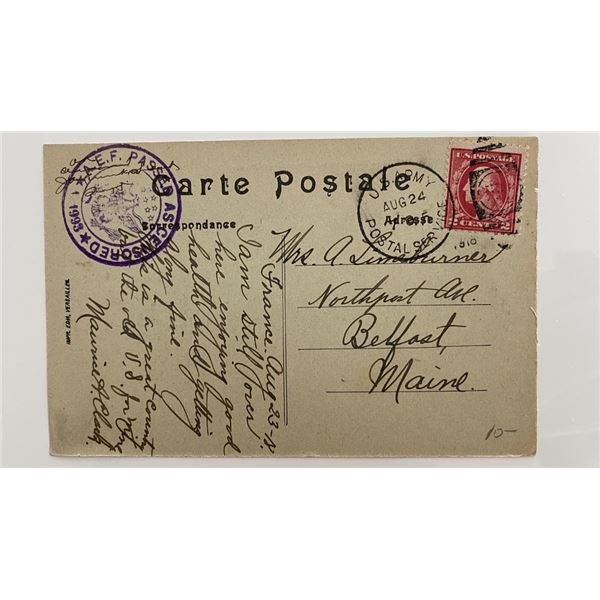 A.E.F. PASSED AS CENSORED
1999
Carte Postale
Correspondance
Adresse
U.S. ARMY
AUG 24
POSTAL SERVICE
1918
U.S. POSTAGE
2 CENTS 2
IMPR. EDIA, VERSAILLES
France Aug-23-18.
I am still over
here enjoying good
health and getting
along fine.
is a great country
but the old U.S. for mine
Maurice A. Clark
Mrs. A. Limeburner
Northport Ave.
Belfast,
Maine.
10-